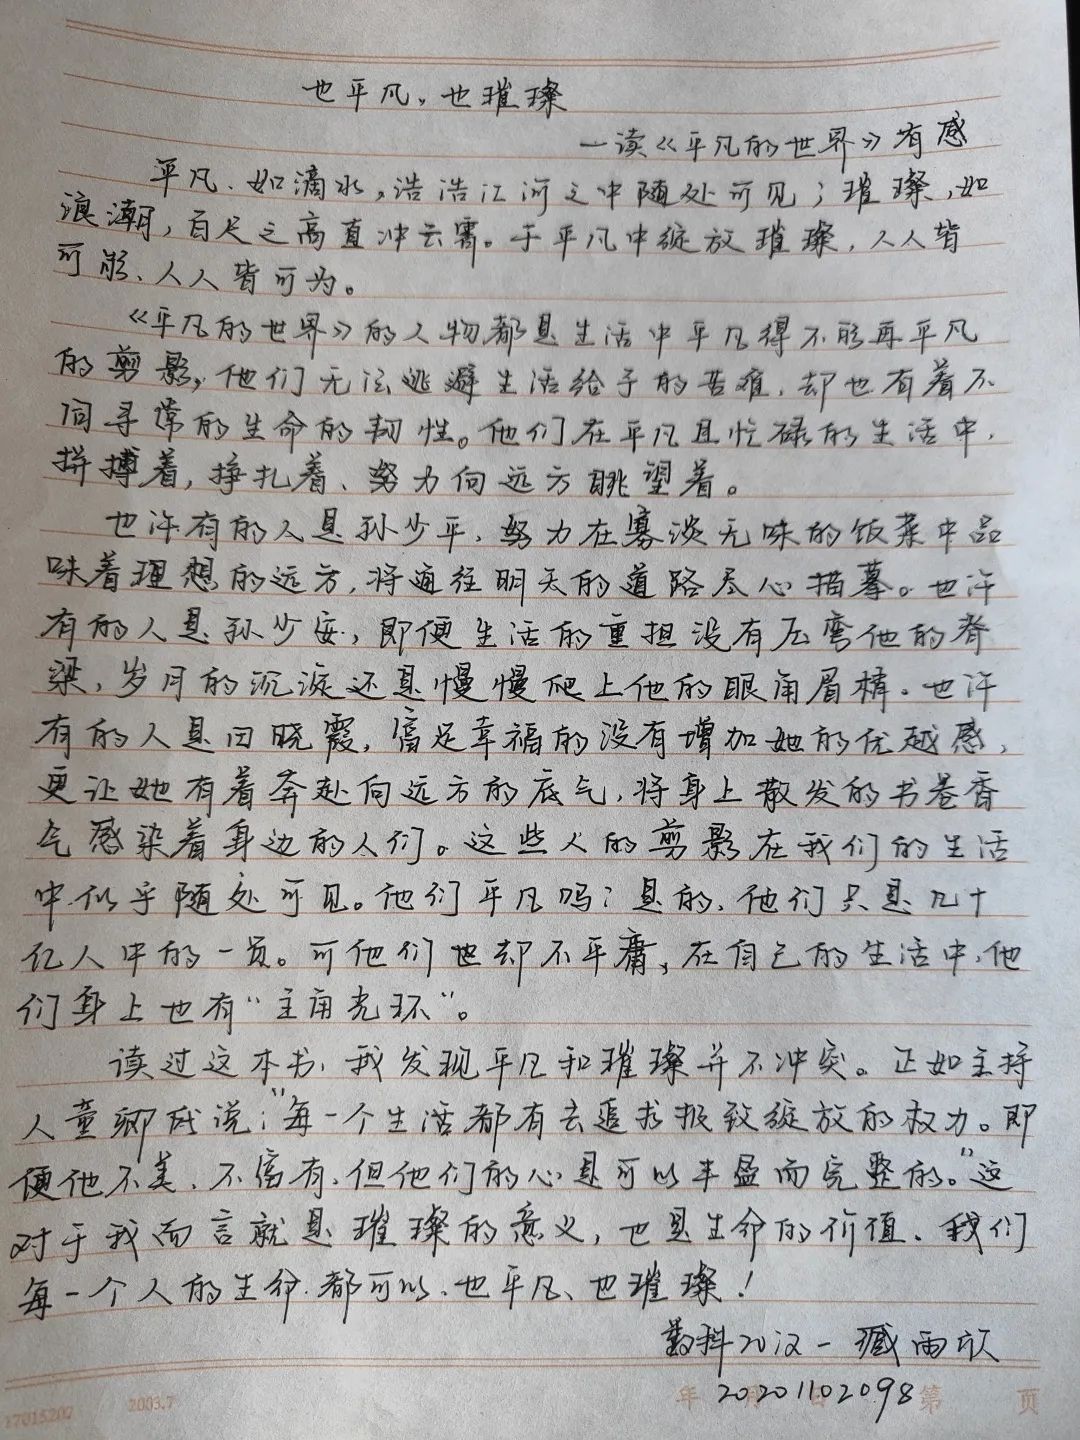 也平凡,也璀璨
—读《平凡的世界》有感
平凡、如滴水,浩浩江河之中随处可见;璀璨,如
浪潮,百尺之高直冲云霄。于平凡中绽放璀璨,人人皆
可能、人人皆可为。
《平凡的世界》的人物都是生活中平凡得不能再平凡
的剪影,他们无法逃避生活给予的苦难,却也有着不
同寻常的生命的韧性。他们在平凡且忙碌的生活中,
拼搏着,挣扎着、努力向远方眺望着。
也许有的人是孙少平,努力在寡淡无味的饭菜中品
味着理想的远方,将通往明天的道路尽心描摹。也许
有的人是孙少安,即便生活的重担没有压弯他的脊
梁,岁月的沉淀还是慢慢爬上他的眼角眉梢。也许
有的人是田晓霞,富足幸福的没有增加她的优越感,
更让她有着奔赴向远方的底气,将身上散发的书卷香
气感染着身边的人们。这些人的剪影在我们的生活
中似乎随处可见。他们平凡吗?是的,他们只是几十
亿人中的一员。可他们也却不平庸,在自己的生活中,他
们身上也有“主角光环”。
读过这本书,我发现平凡和璀璨并不冲突。正如主持
人董卿所说:“每一个生活都有去追求极致绽放的权力。即
便他不美、不富有,但他们的心是可以丰盈而完整的。”这
对于我而言就是璀璨的意义,也是生命的价值、我们
每一个人的生命,都可以、也平凡、也璀璨!
数科20汉一 臧雨欣
20201102098
年 月 日 第 页
17015202 2003.7